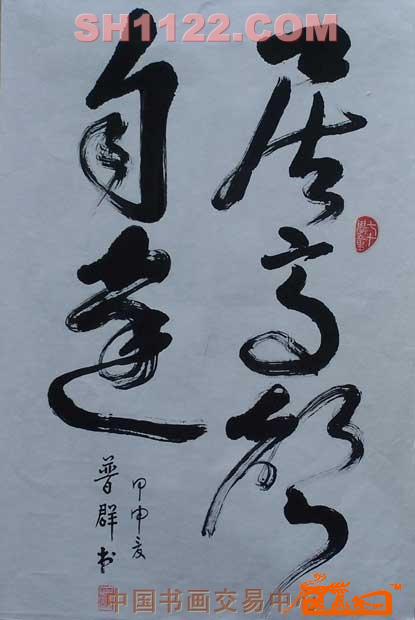 SH1122.COM
居高聲
自遠
甲申夏
普群书
中国书画交易中心